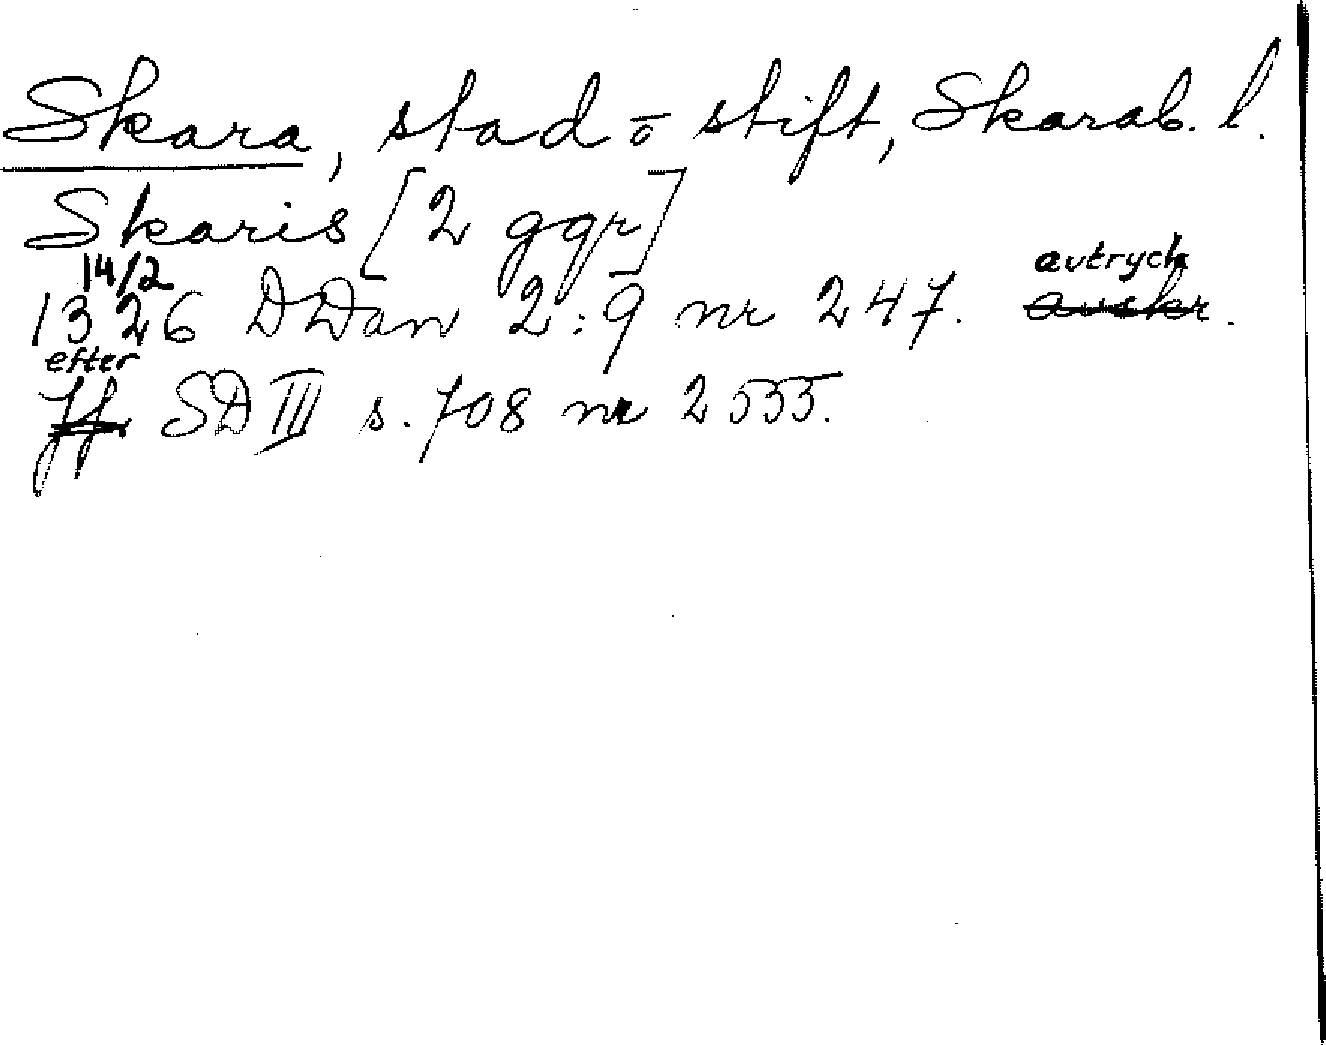 Skara, stad o stift, Skarab. l.
Skaris [2 ggr]
14/2
1326 DDan 2:9 nr 247. avtryck
efter
SD III s. 708 nr 2555.